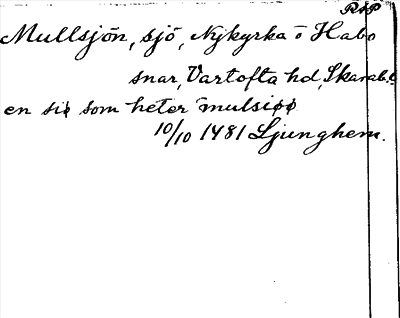 RAP
Mullsjön, sjö, Nykyrka o Habo
snar, Vartofta hd, Skarab.l.
en siø som heter mulsiøø
10/10 1481 Ljunghem.